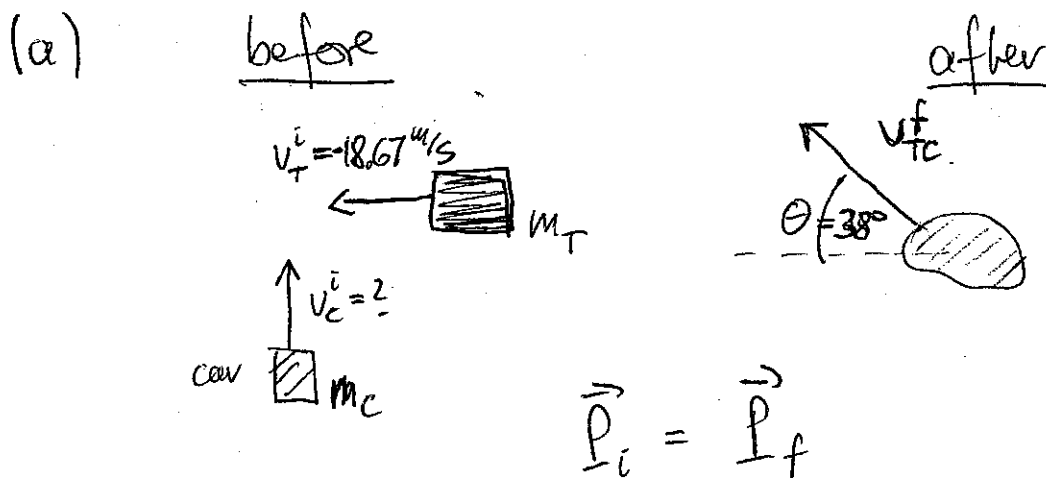 (a) before after
v_T^i = -18.67 m/s
v_TC^f
m_T
θ = 38°
v_C^i = ?
car m_C
P_i = P_f